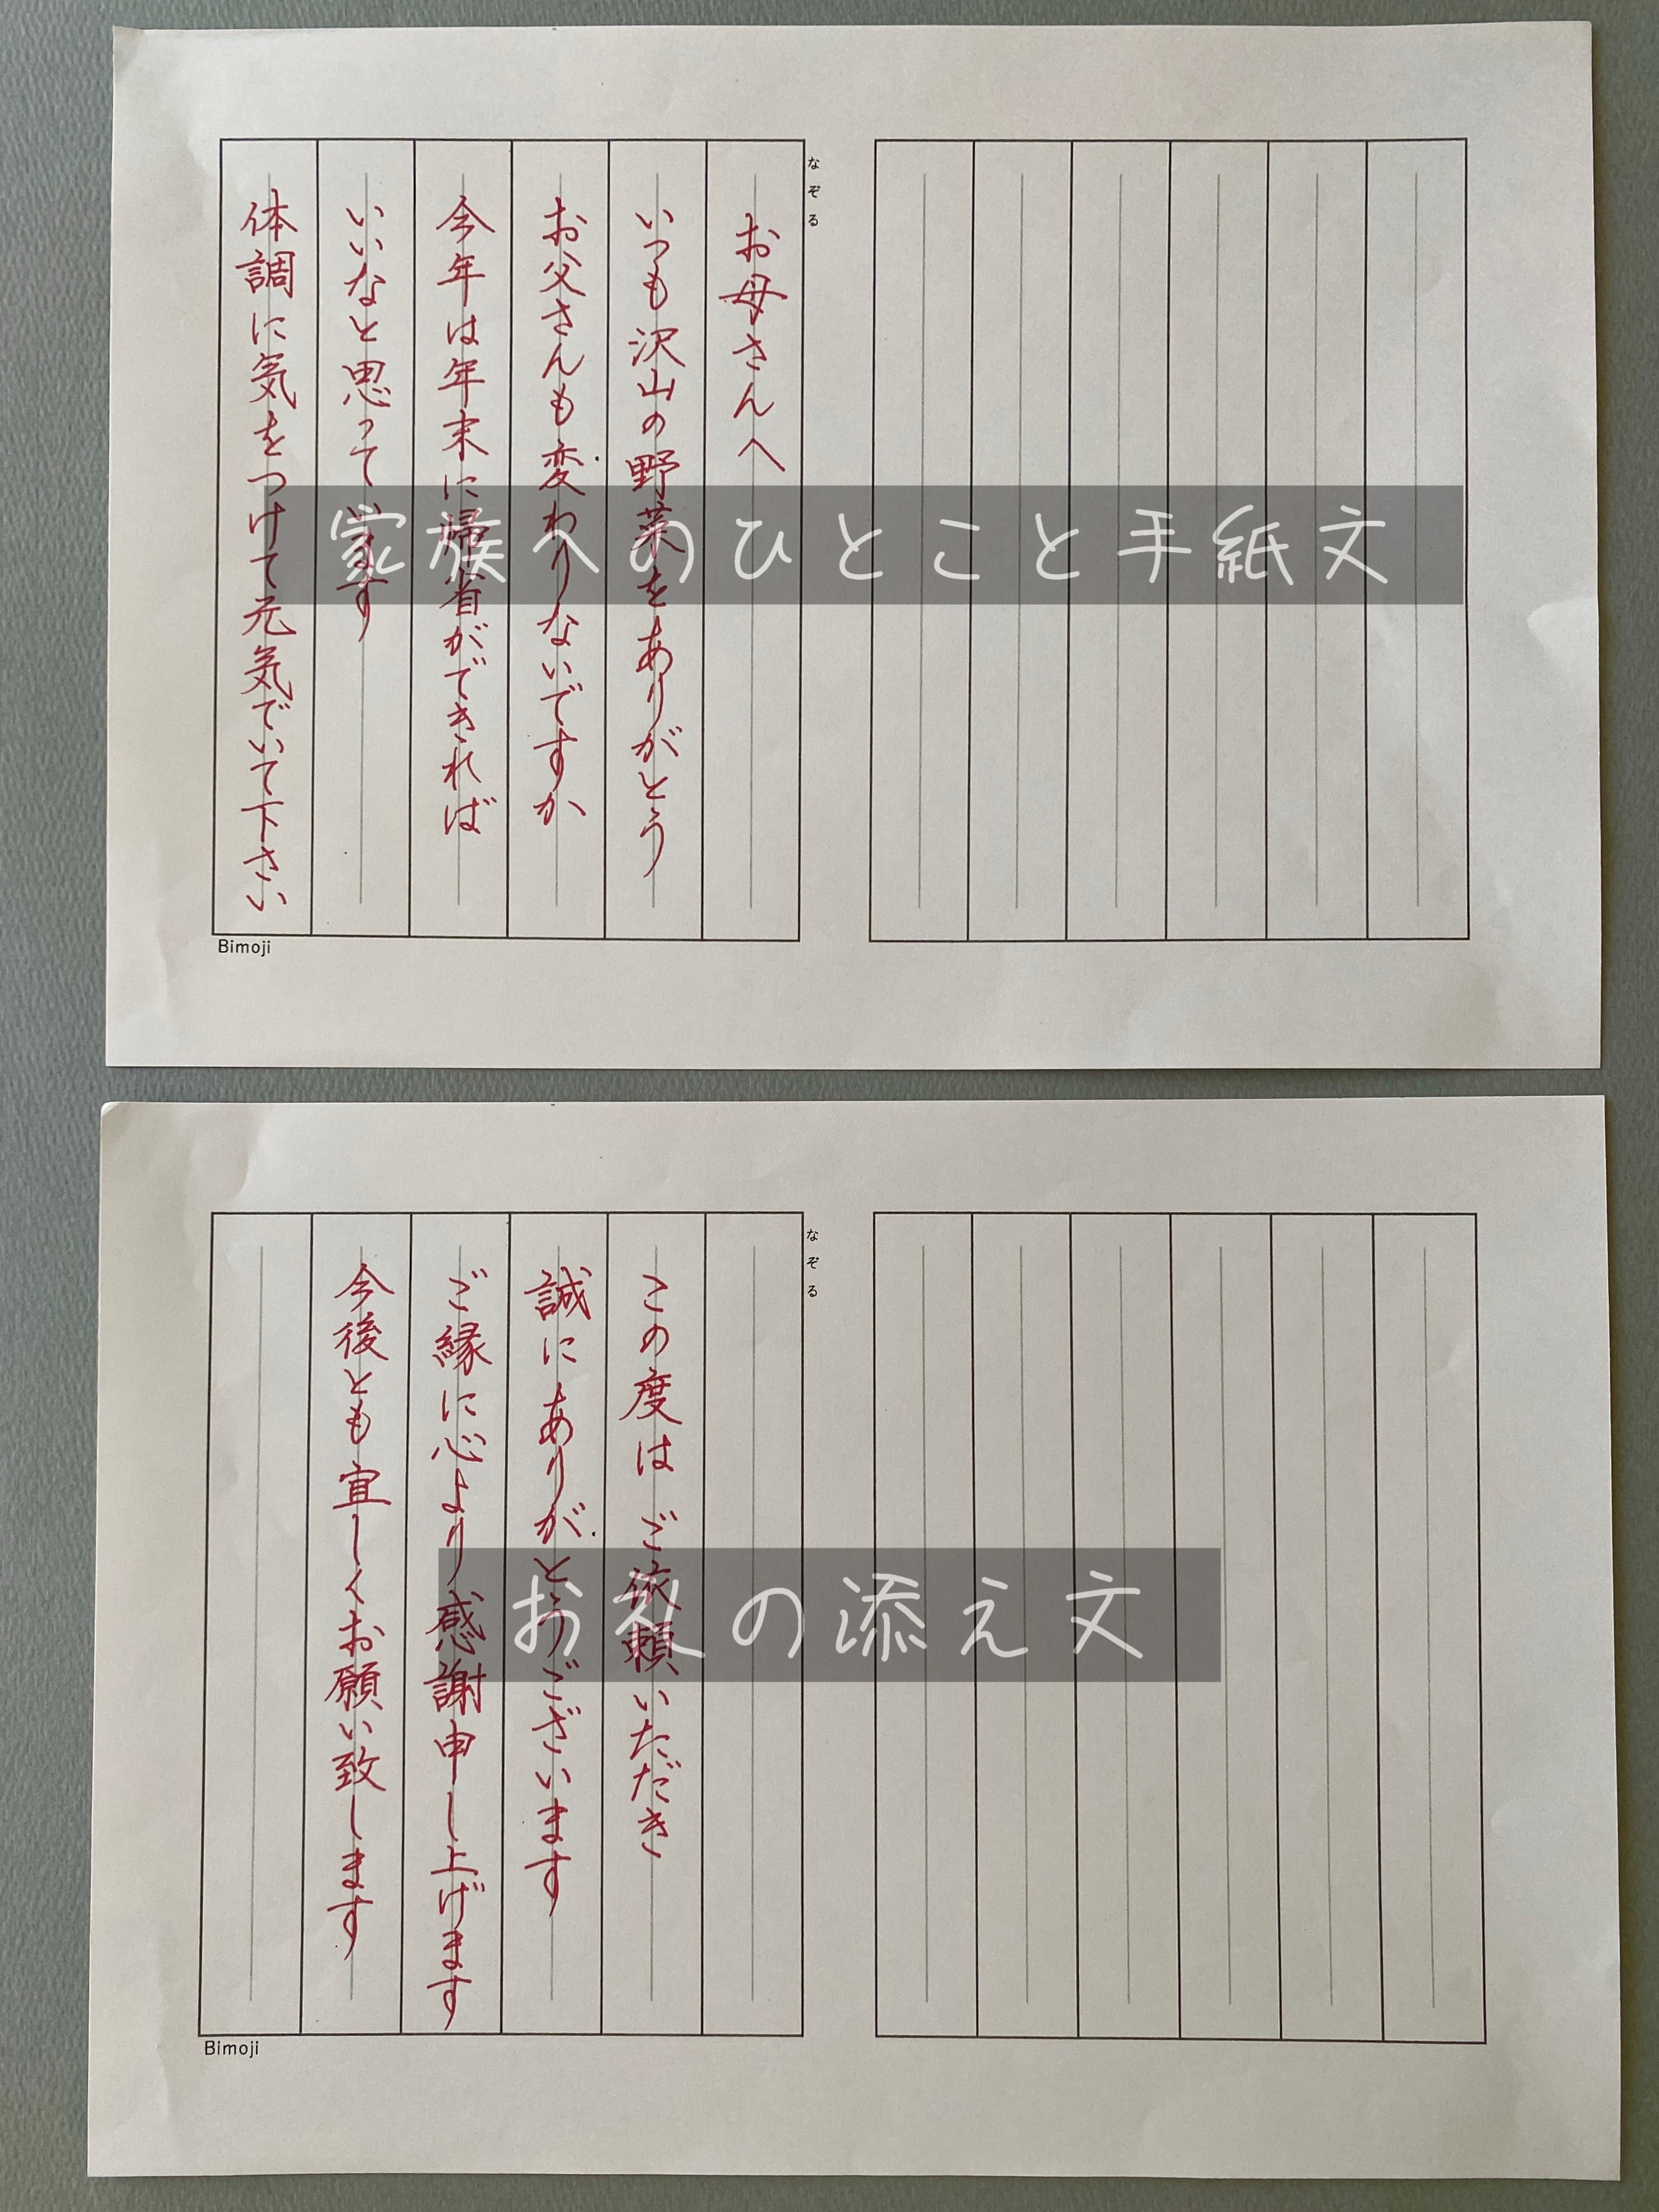 なぞる
お母さんへ
いつも沢山の野菜をありがとう
お父さんも変わりないですか
今年は年末に帰省ができれば
いいなと思っています
体調に気をつけて元気でいて下さい
Bimoji
家族へのひとこと手紙文
なぞる
この度は ご依頼いただき
誠にありがとうございます
ご縁に心より感謝申し上げます
今後とも宜しくお願い致します
Bimoji
お礼の添え文